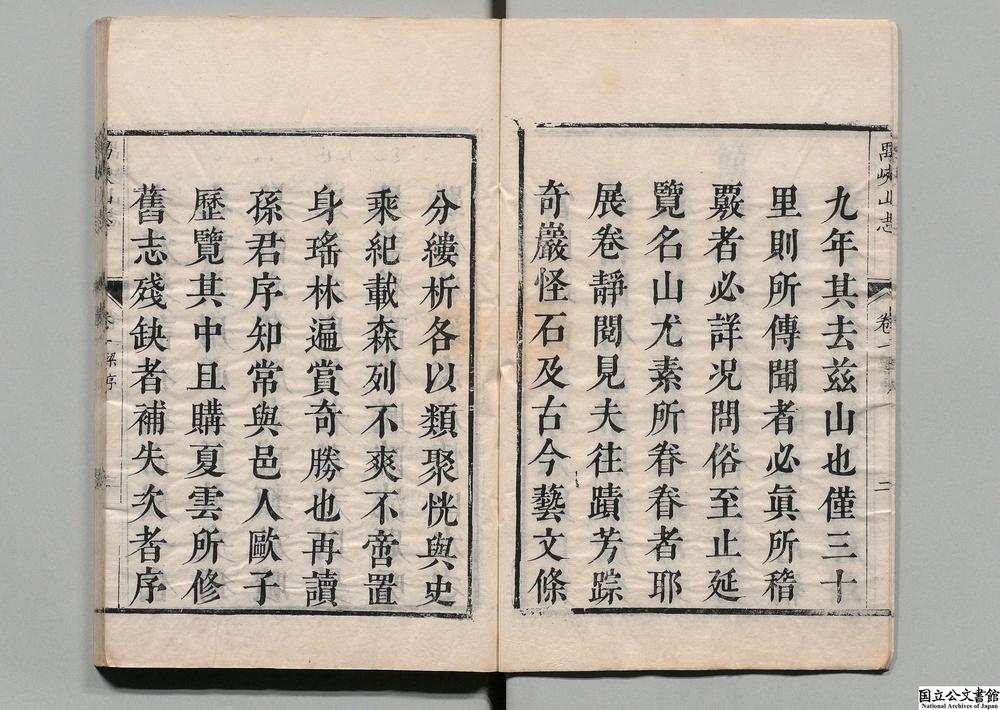 禺峽山志
卷一
二
九年其去兹山也僅三十
里則所傳聞者必眞所稽
覈者必詳况問俗至止延
覽名山尤素所眷眷者耶
展卷靜閱見夫往蹟芳踪
奇巖怪石及古今藝文條
分縷析各以類聚恍與史
乘紀載森列不爽不啻置
身瑤林遍賞奇勝也再讀
孫君序知常與邑人歐子
歷覽其中且購夏雲所修
舊志殘缺者補失次者序
國立公文書館
National Archives of Japan